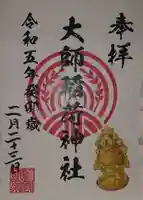 奉拝
大師稲荷神社
令和五年癸卯歳
二月二十三日